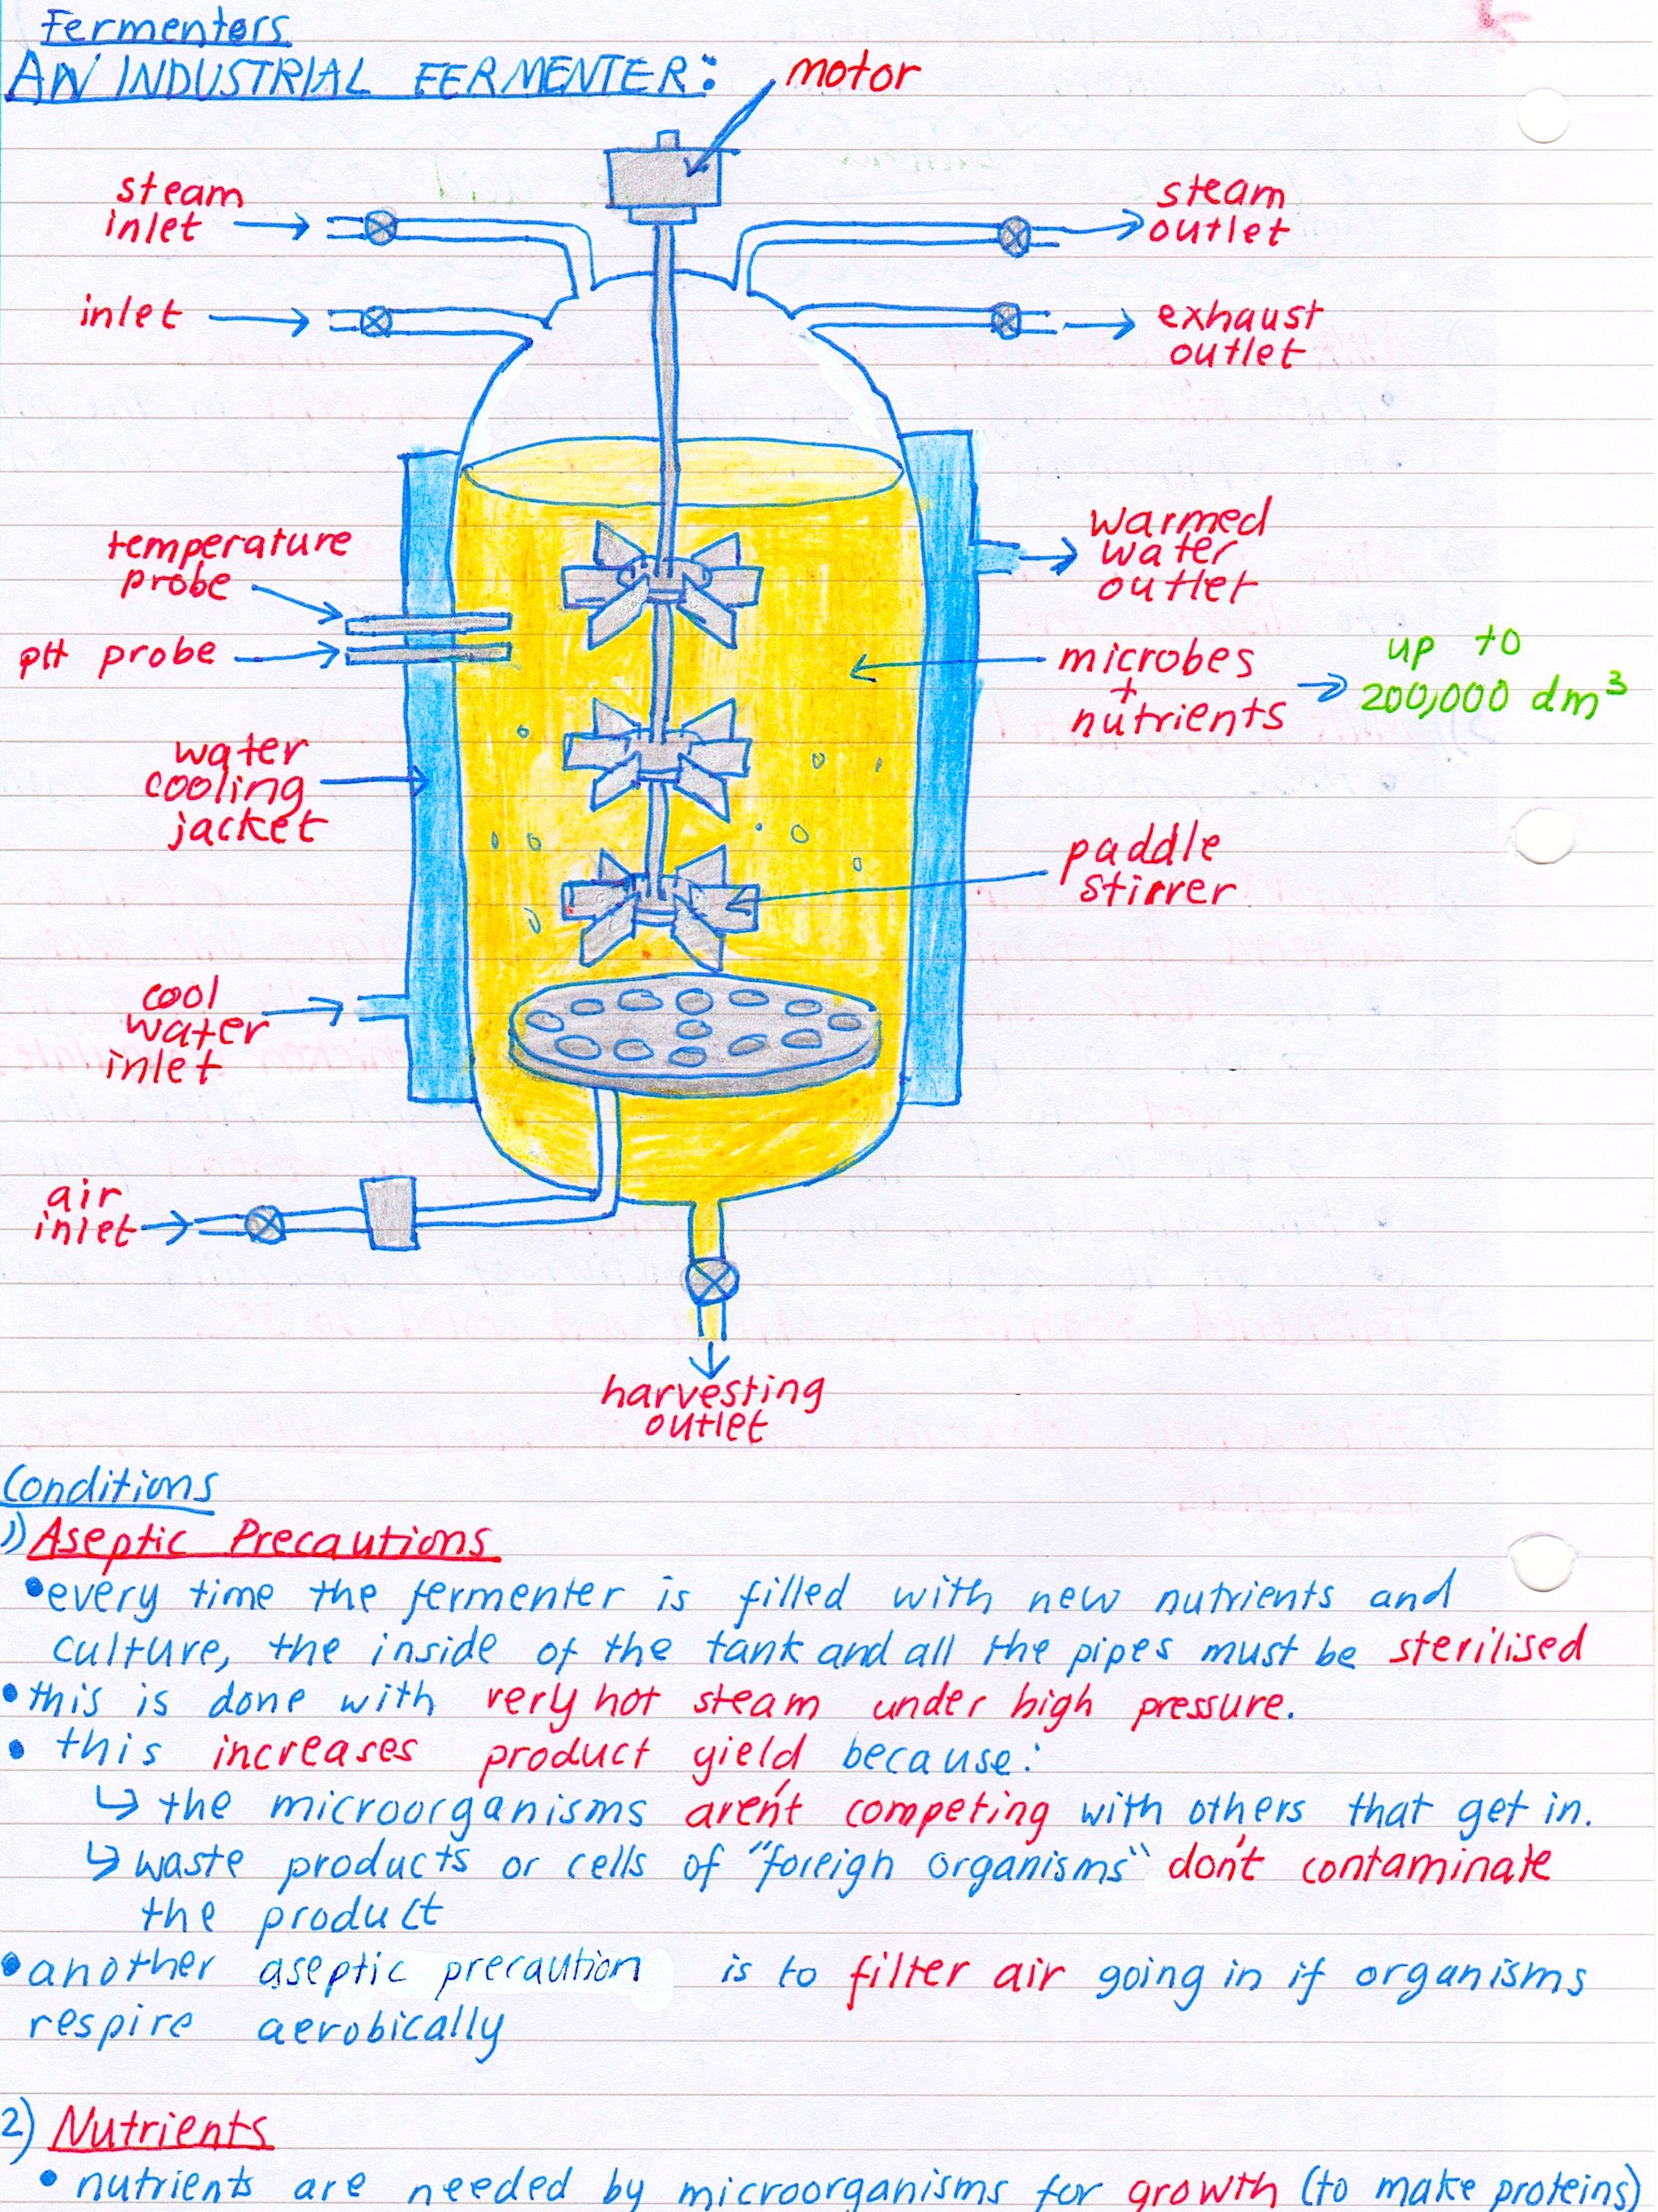 Fermentors
AN INDUSTRIAL FERMENTER:
motor
steam
inlet
steam
outlet
inlet
exhaust
outlet
temperature
probe
warmed
water
outlet
pH probe
microbes
+
nutrients
up to
200,000 dm³
water
cooling
jacket
paddle
stirrer
cool
water
inlet
air
inlet
harvesting
outlet
Conditions
1) Aseptic Precautions
• every time the fermenter is filled with new nutrients and
culture, the inside of the tank and all the pipes must be sterilised
• this is done with very hot steam under high pressure.
• this increases product yield because:
↳ the microorganisms aren't competing with others that get in.
↳ waste products or cells of "foreign organisms" don't contaminate
the product
• another aseptic precaution is to filter air going in if organisms
respire aerobically
2) Nutrients
• nutrients are needed by microorganisms for growth (to make proteins)